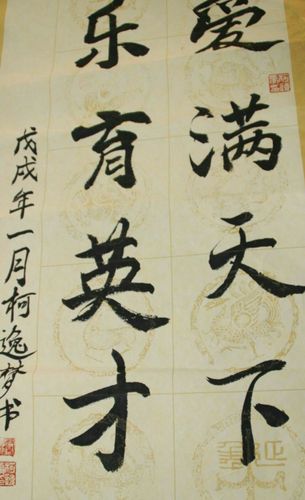 爱满天下
乐育英才
戊戌年一月柯逸梦书